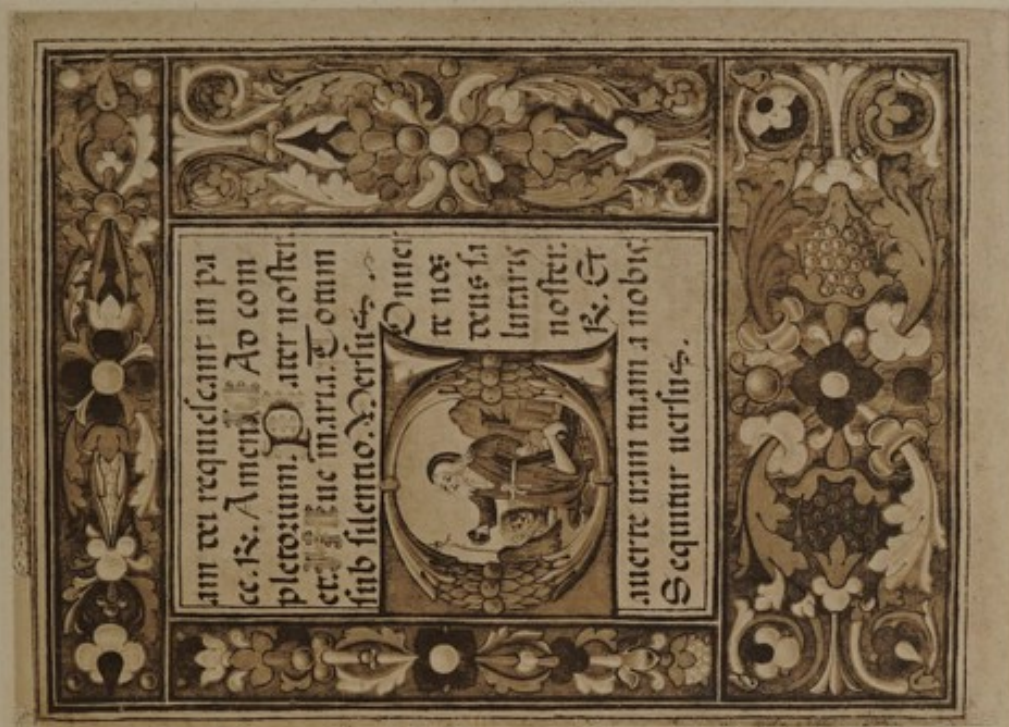 am dei requiescant in pa
ce. R. Amen. Ad com
pletorium. Pater noster.
et. Aue maria. Totum
sub silentio. Versus.
COnuer
te nos
deus sa
lutaris
noster.
R. Et
auerte iram tuam a nobis.
Sequitur uersus.